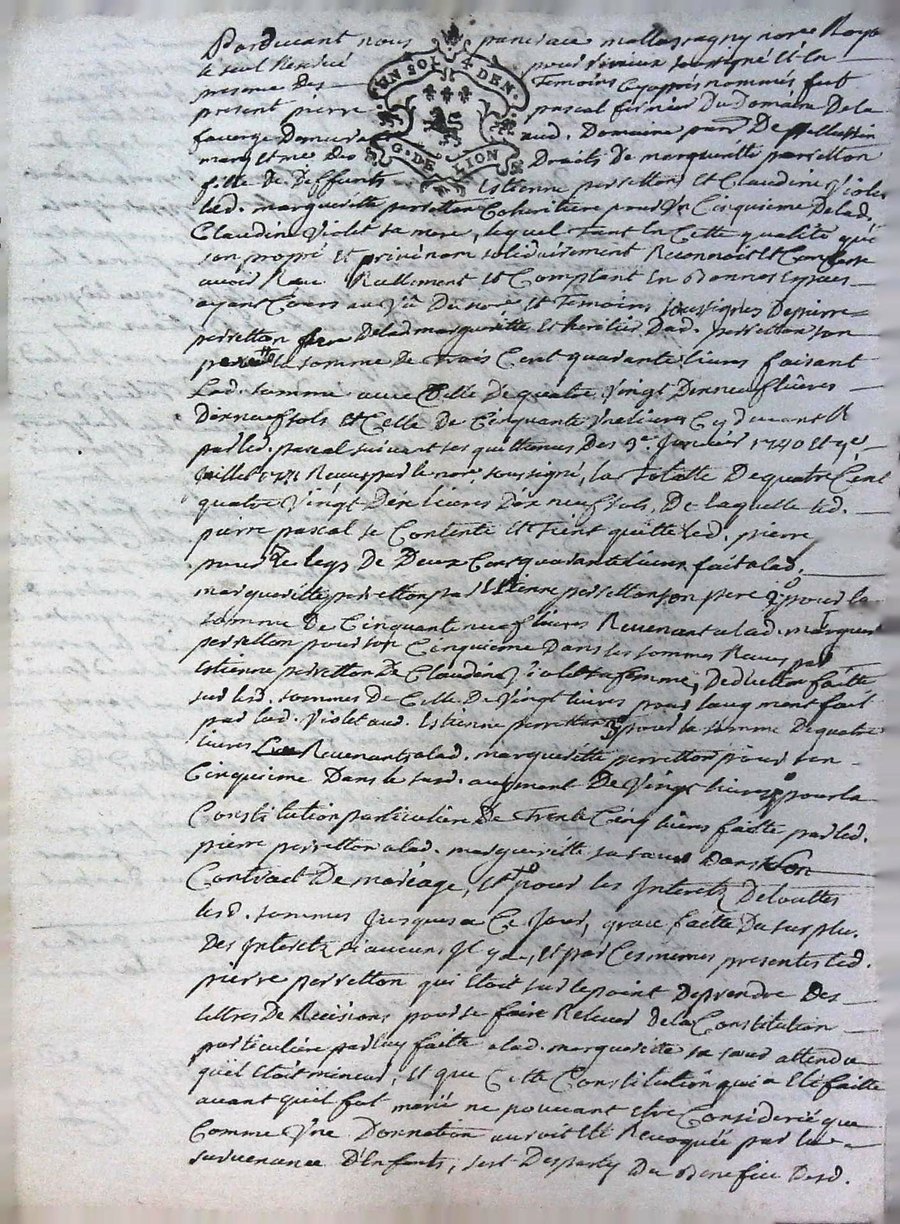 UN SOL 4 DEN.
G. DE LION
Pardevant nous pancrace mallassagny nore Royal
le seul Reservé pour Rivieux soussigné Et En
presence des Temoins Cyapres nommés, fut
present pierre pascal fermier Du Domaine De la
faverge Demeurant aud. Domaine parr. De pellussin
mary Et me des Droits de margueritte perretton
fille de deffunts Estienne perretton Et Claudine Violet
lad. marguerite perretton Coheritiere pour Un Cinquieme De lad.
Claudine Violet sa mere, lequel Tant En Cette qualité qu'en
son propre Et privénom solidairement Reconnoit Et Confesse
avoir Reçu Reellement Et Comptant En Bonnes Especes
ayant Cours au vû Du nore Et Temoins soussignes De pierre
perretton frere De lad marguerite Et heritier Dud. perretton son
pere la somme de Trois Cent quarante livres faisant
Lad. somme avec Celle De quatre Vingt Dix neuf livres
Dix neuf sols Et Celle De Cinquante Une livres Cy devant R
par led. pascal suivant ses quittances Des 9e. Janvier 1740 Et 9e
Juillet Reçues par le nore soussigné, la Totalle De quatre Cent
quatre Vingt Dix livres Dix neuf sols, De laquelle led.
pierre pascal se Contente Et Tient quitte led. pierre
pour le legs de Deux Cent quarante livres fait a lad.
marguerite perretton par Estienne perretton son pere 2o pour la
somme De Cinquante neuf livres Revenant a lad. marguer
perretton pour son Cinquieme Dans les sommes Reçues par
Estienne perretton De Claudine Violet sa femme, Deduction faitte
sur lesd. sommes de Celle De Vingt livres pour laugment fait
par lad. Violet aud. Estienne perretton 3o pour la somme De quatre
livres Revenant a lad. marguerite perretton pour son
Cinquieme Dans le susd. augment De Vingt livres pour la
Constitution particuliere De Trente Cinq livres faitte par led.
pierre perretton a lad. marguerite sa sœur Dans son
Contract De mariage, Et pour les Interets De touttes
lesd. sommes Jusques a Ce Jour, grace faitte Du surplus
Des Interets si aucuns Il y a, Et par Ces mêmes presentes led.
pierre perretton qui Etoit sur le point De prendre Des
lettres De Recisions pour se faire Relever De la Constitution
particuliere par luy faitte a lad. marguerite sa sœur attendu
qu'il Etoit mineur, Et que Cette Constitution qui a Eté faitte
avant qu'il fut marié ne pouvant Etre Considerée que
Comme Une Donnation auroit Eté Revoquée par la
survenance D'Enfants, sest Desparty Du Benefice Desd.